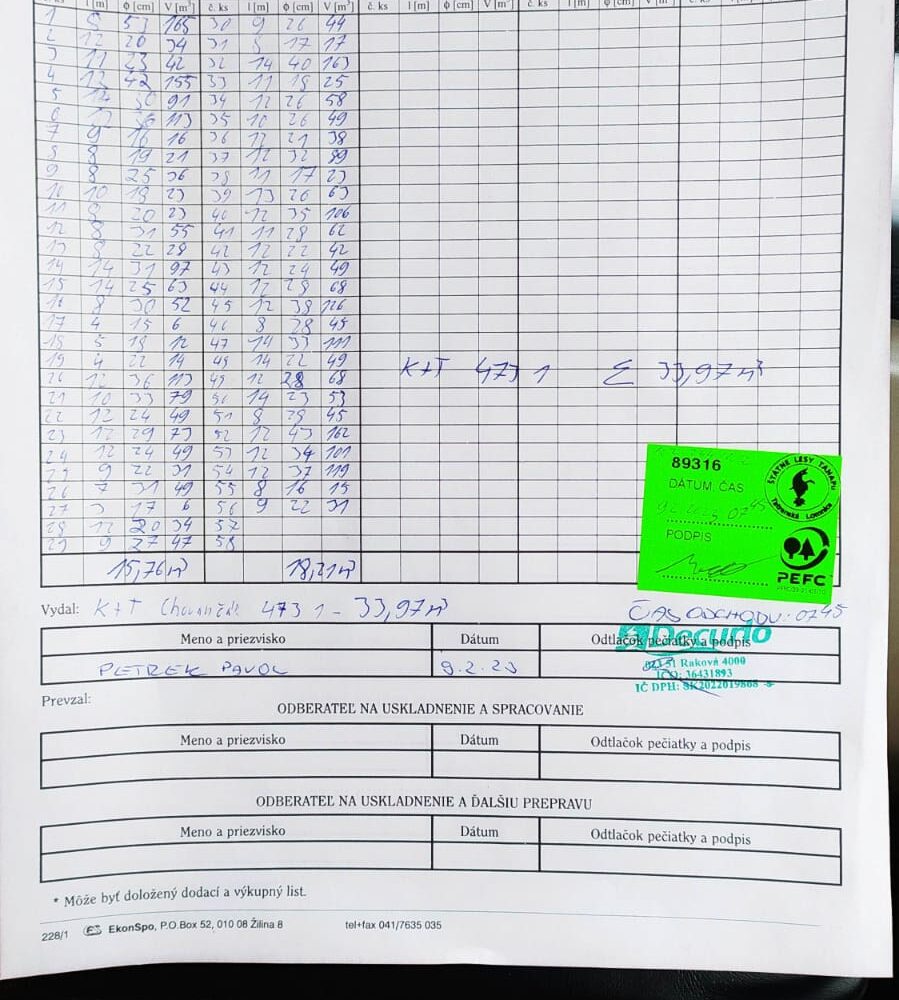 č. ks l [m] ϕ [cm] V [m³] č. ks l [m] ϕ [cm] V [m³] č. ks l [m] ϕ [cm] V [m³] č. ks l [m] ϕ [cm] V [m³] č. ks
1 8 53 165 30 9 26 44
2 12 20 34 31 8 17 17
3 11 23 42 32 14 40 163
4 12 42 155 33 11 18 25
5 12 91 34 12 26 58
6 36 113 35 10 26 49
7 9 16 16 36 12 21 38
8 8 19 21 37 12 32 89
9 8 25 36 38 11 17 23
10 10 18 23 39 13 26 63
11 8 20 23 40 12 35 106
12 8 31 55 41 11 28 62
13 8 22 28 42 12 22 42
14 14 31 97 43 12 24 49
15 14 25 63 44 12 28 68
16 8 30 52 45 12 38 126
17 4 15 6 46 8 28 45
18 5 18 12 47 14 33 111
19 4 22 14 48 14 22 49
20 12 36 113 49 12 28 68
K+T 473 1 Σ 33,97 m³
21 10 33 79 50 14 23 53
22 12 24 49 51 8 28 45
23 12 29 73 52 12 43 162
24 12 24 49 53 12 34 101
25 9 22 31 54 12 37 119
26 7 31 49 55 8 16 15
27 3 17 6 56 9 22 31
28 12 20 34 57
29 9 27 47 58
15,76 m³ 18,21 m³
89316
DÁTUM, ČAS
9.2. 07 45
PODPIS
ŠTÁTNE LESY TANAPU
Tatranská Lomnica
PEFC
Vydal: K+T 473 1 - 33,97 m³
ČAS ODCHODU: 07 45
Meno a priezvisko Dátum Odtlačok pečiatky a podpis
Decurio
PETREK PAVOL 9.2.23
023 51 Raková 4000
IČO: 36431893
IČ DPH: SK2022019868
Prevzal:
ODBERATEĽ NA USKLADNENIE A SPRACOVANIE
Meno a priezvisko Dátum Odtlačok pečiatky a podpis
ODBERATEĽ NA USKLADNENIE A ĎALŠIU PREPRAVU
Meno a priezvisko Dátum Odtlačok pečiatky a podpis
* Môže byť doložený dodací a výkupný list.
228/1 EkonSpo, P.O.Box 52, 010 08 Žilina 8 tel+fax 041/7635 035